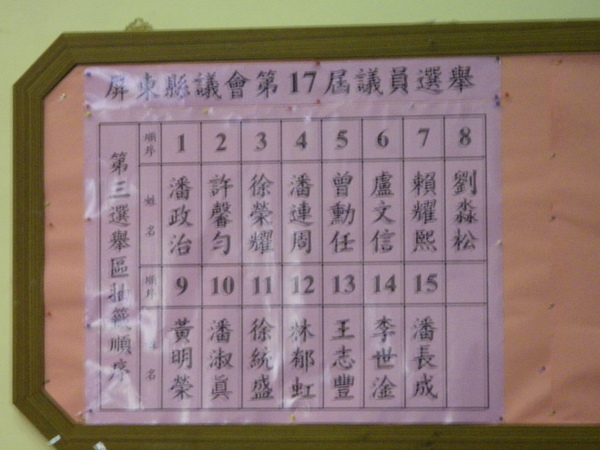 屏東縣議會第17屆議員選舉
第三選舉區抽籤順序
順序 1 2 3 4 5 6 7 8
姓名 潘政治 許馨勻 徐榮耀 潘連周 曾勳任 盧文信 賴耀熙 劉淼松
順序 9 10 11 12 13 14 15
姓名 黃明榮 潘淑真 徐統盛 林郁虹 王志豐 李世淦 潘長成